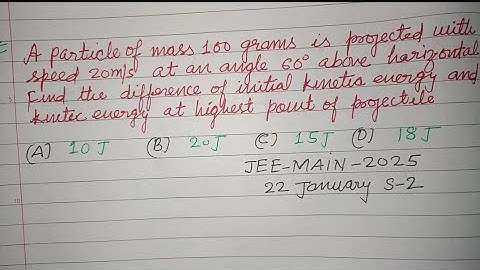 A particle of mass 100 grams is projected with
speed 20m/s at an angle 60° above horizontal
Find the difference of initial kinetic energy and
kinetic energy at highest point of projectile
(A) 10 J (B) 20 J (C) 15 J (D) 18 J
JEE-MAIN-2025
22 January S-2